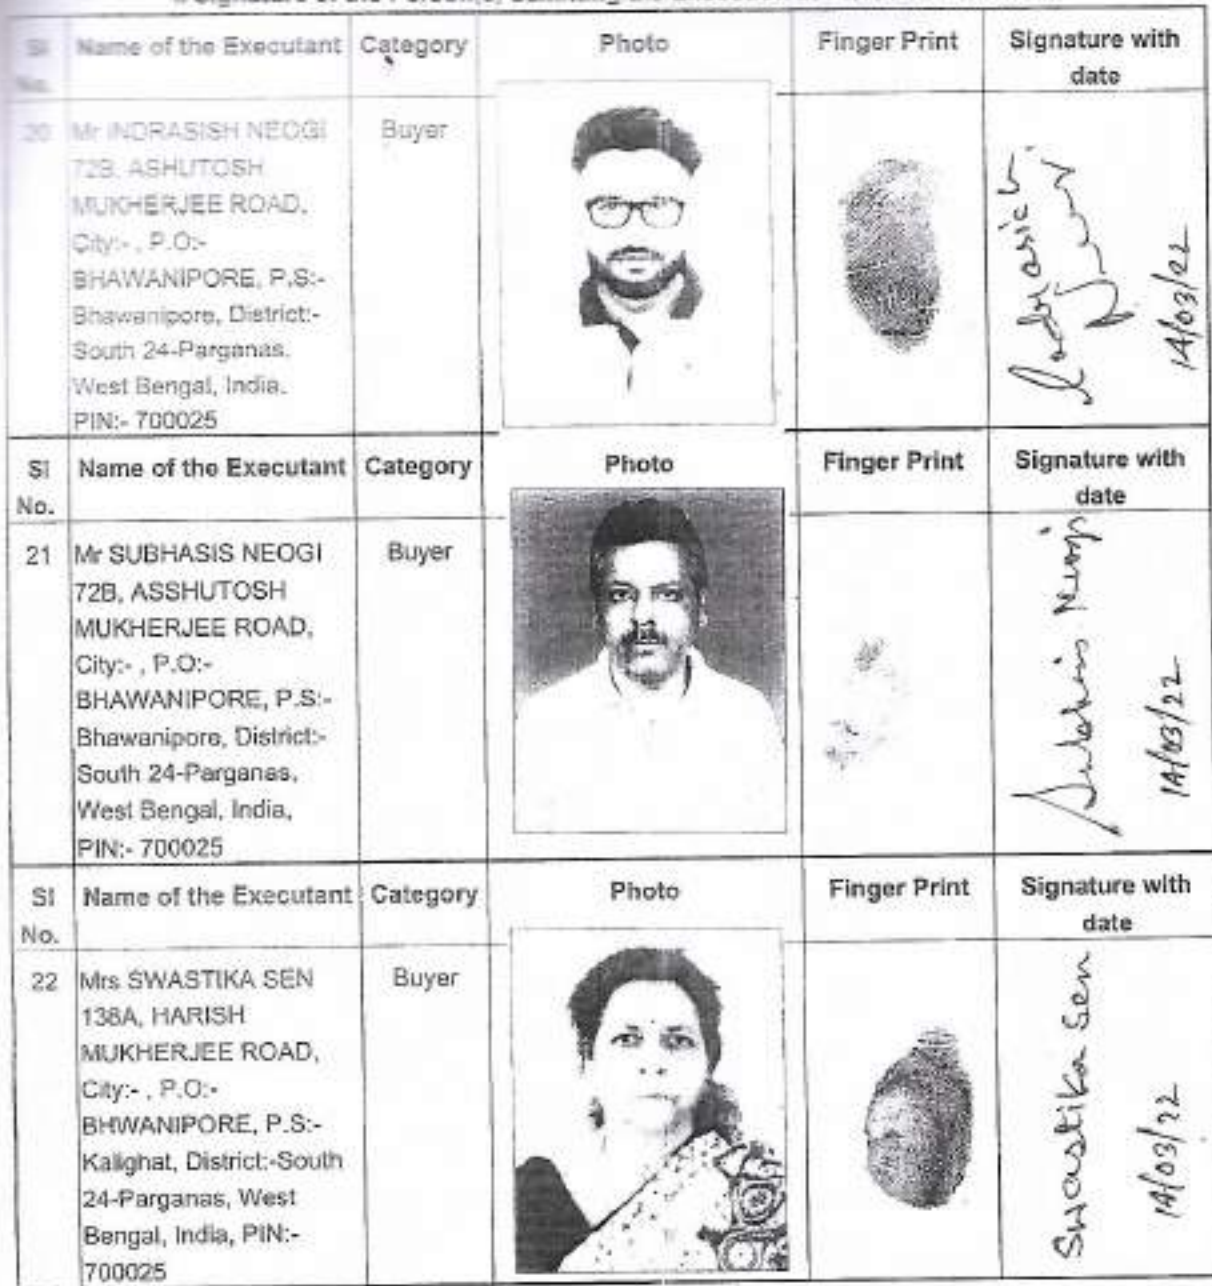 Signature of the Person(s)
Sl No. Name of the Executant Category Photo Finger Print Signature with date
20 Mr INDRASISH NEOGI Buyer
72B, ASHUTOSH
MUKHERJEE ROAD,
City:- , P.O:-
BHAWANIPORE, P.S:-
Bhawanipore, District:-
South 24-Parganas,
West Bengal, India,
PIN:- 700025
Indrasish
14/03/22
Sl No. Name of the Executant Category Photo Finger Print Signature with date
21 Mr SUBHASIS NEOGI Buyer
72B, ASSHUTOSH
MUKHERJEE ROAD,
City:- , P.O:-
BHAWANIPORE, P.S:-
Bhawanipore, District:-
South 24-Parganas,
West Bengal, India,
PIN:- 700025
Subhasis Neogi
14/03/22
Sl No. Name of the Executant Category Photo Finger Print Signature with date
22 Mrs SWASTIKA SEN Buyer
138A, HARISH
MUKHERJEE ROAD,
City:- , P.O:-
BHWANIPORE, P.S:-
Kalighat, District:-South
24-Parganas, West
Bengal, India, PIN:-
700025
Swastika Sen
14/03/22